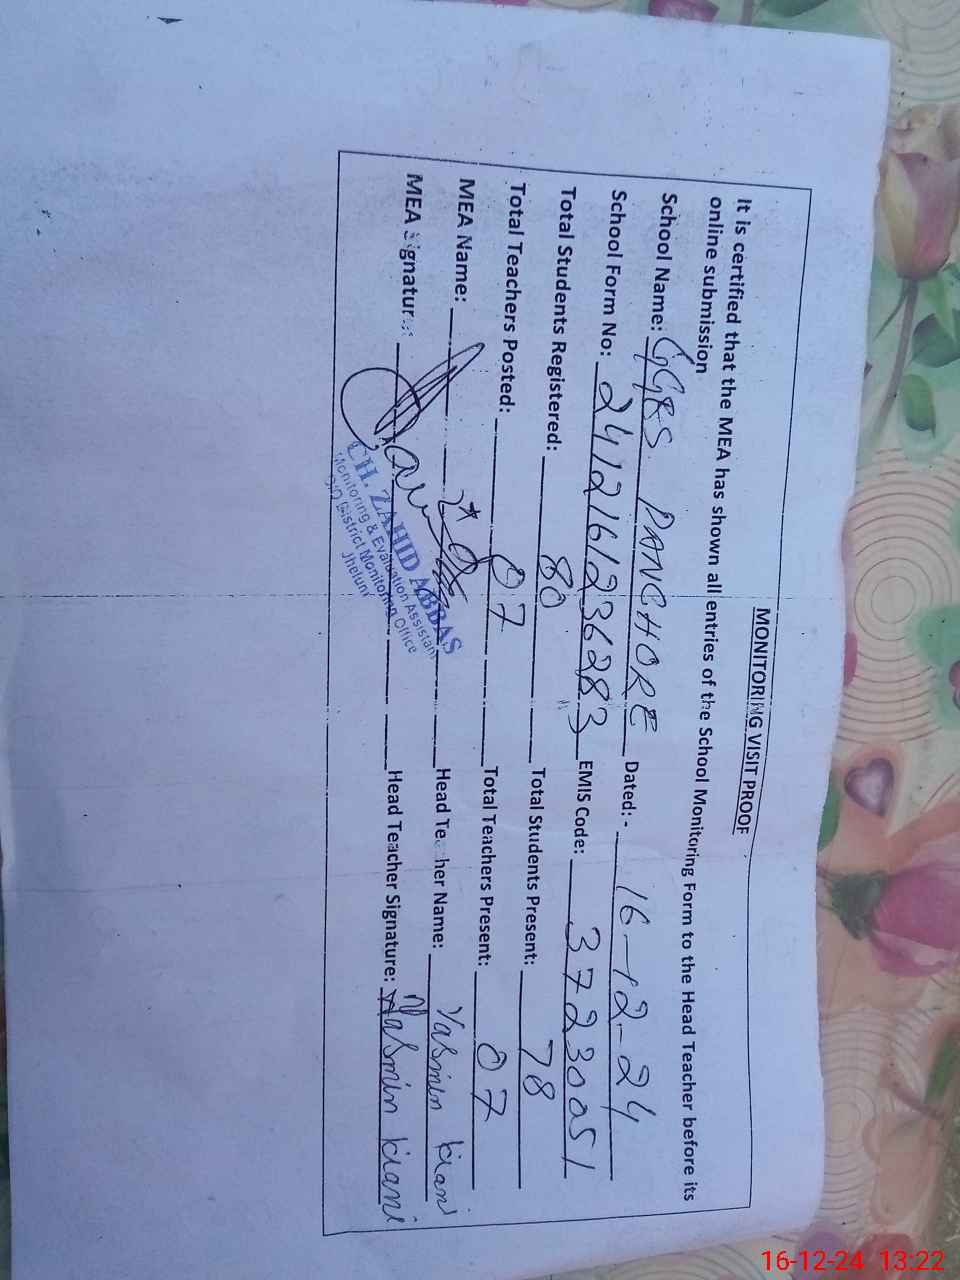 MONITORING VISIT PROOF
It is certified that the MEA has shown all entries of the School Monitoring Form to the Head Teacher before its
online submission
School Name: GGES PANCHORE Dated:- 16-12-24
School Form No: 2412161236283 EMIS Code: 37230051
Total Students Registered: 80 Total Students Present: 78
Total Teachers Posted: 07 Total Teachers Present: 07
MEA Name: Head Teacher Name: Yasmin kiani
MEA Signature: Head Teacher Signature: Yasmin kiani
CH. ZAHID ABBAS
Monitoring & Evaluation Assistant
O/O District Monitoring Office
Jhelum
16-12-24 13:22